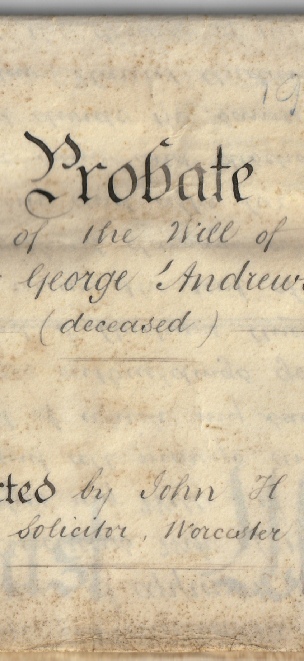 Probate
of the Will of
George Andrews
(deceased)
cted by John H
Solicitor, Worcester